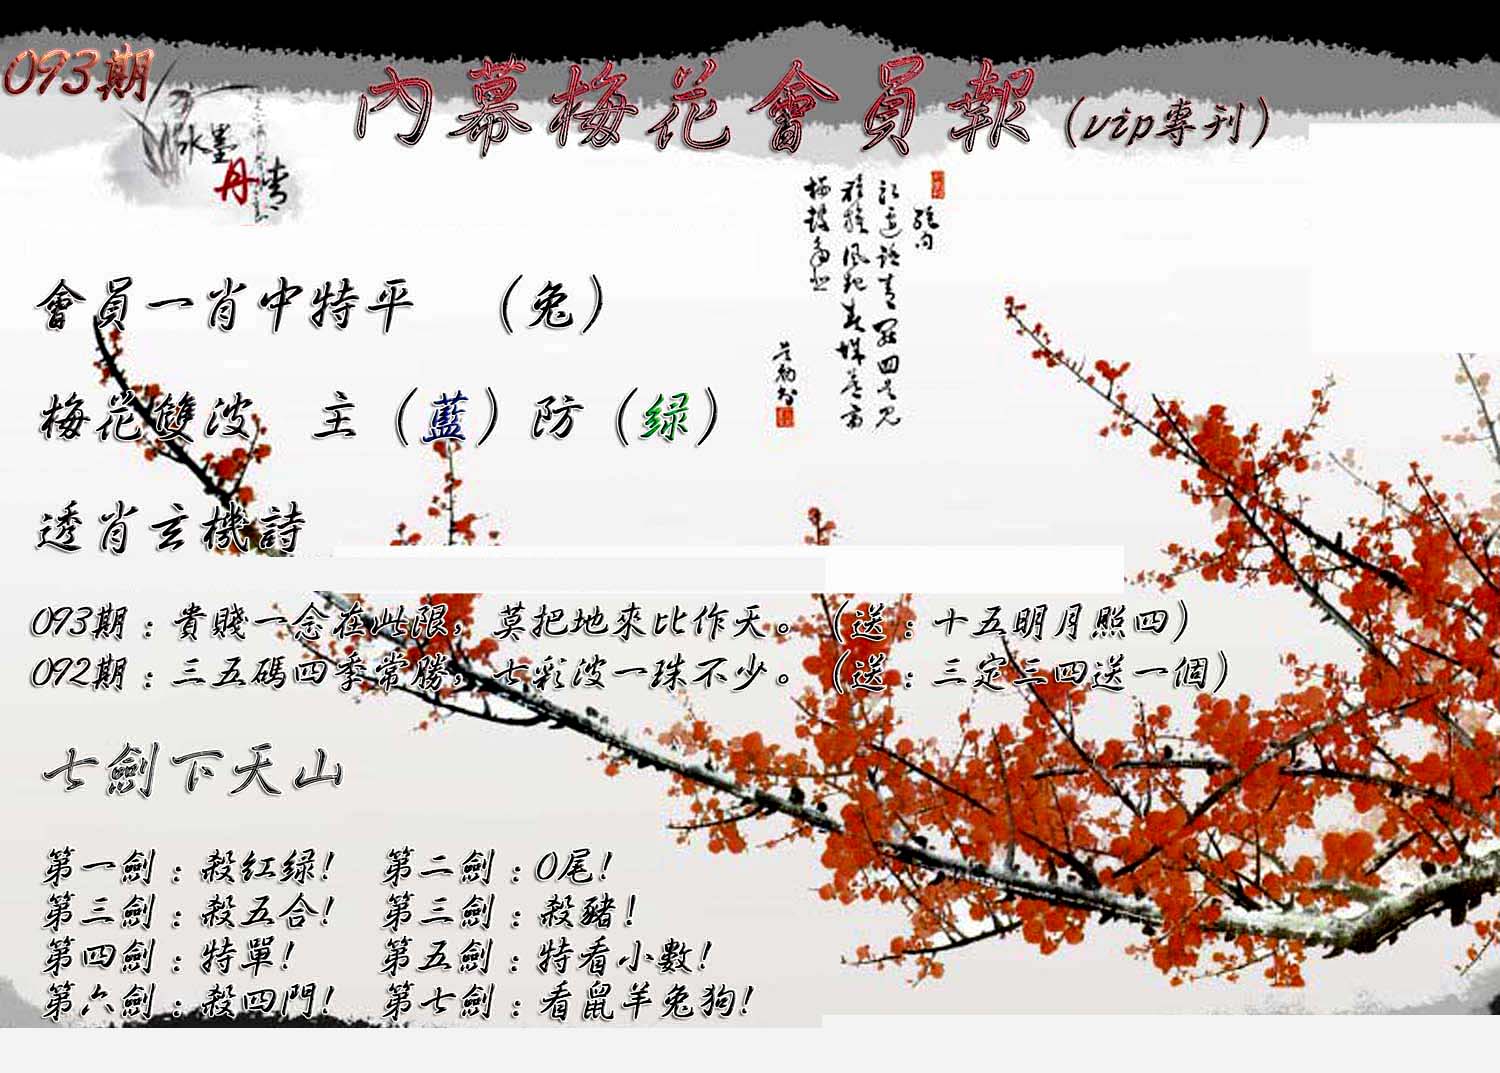 093期
內幕梅花會員報（vip專刊）
水墨
丹青
會員一肖中特平 （兔）
梅花雙波 主（藍）防（绿）
透肖玄機詩
093期：貴賤一念在此限，莫把地來比作天。（送：十五明月照四）
092期：三五碼四季常勝，七彩波一珠不少。（送：三定三四送一個）
七劍下天山
第一劍：殺紅绿! 第二劍：0尾!
第三劍：殺五合! 第三劍：殺豬!
第四劍：特單! 第五劍：特看小數!
第六劍：殺四門! 第七劍：看鼠羊兔狗!